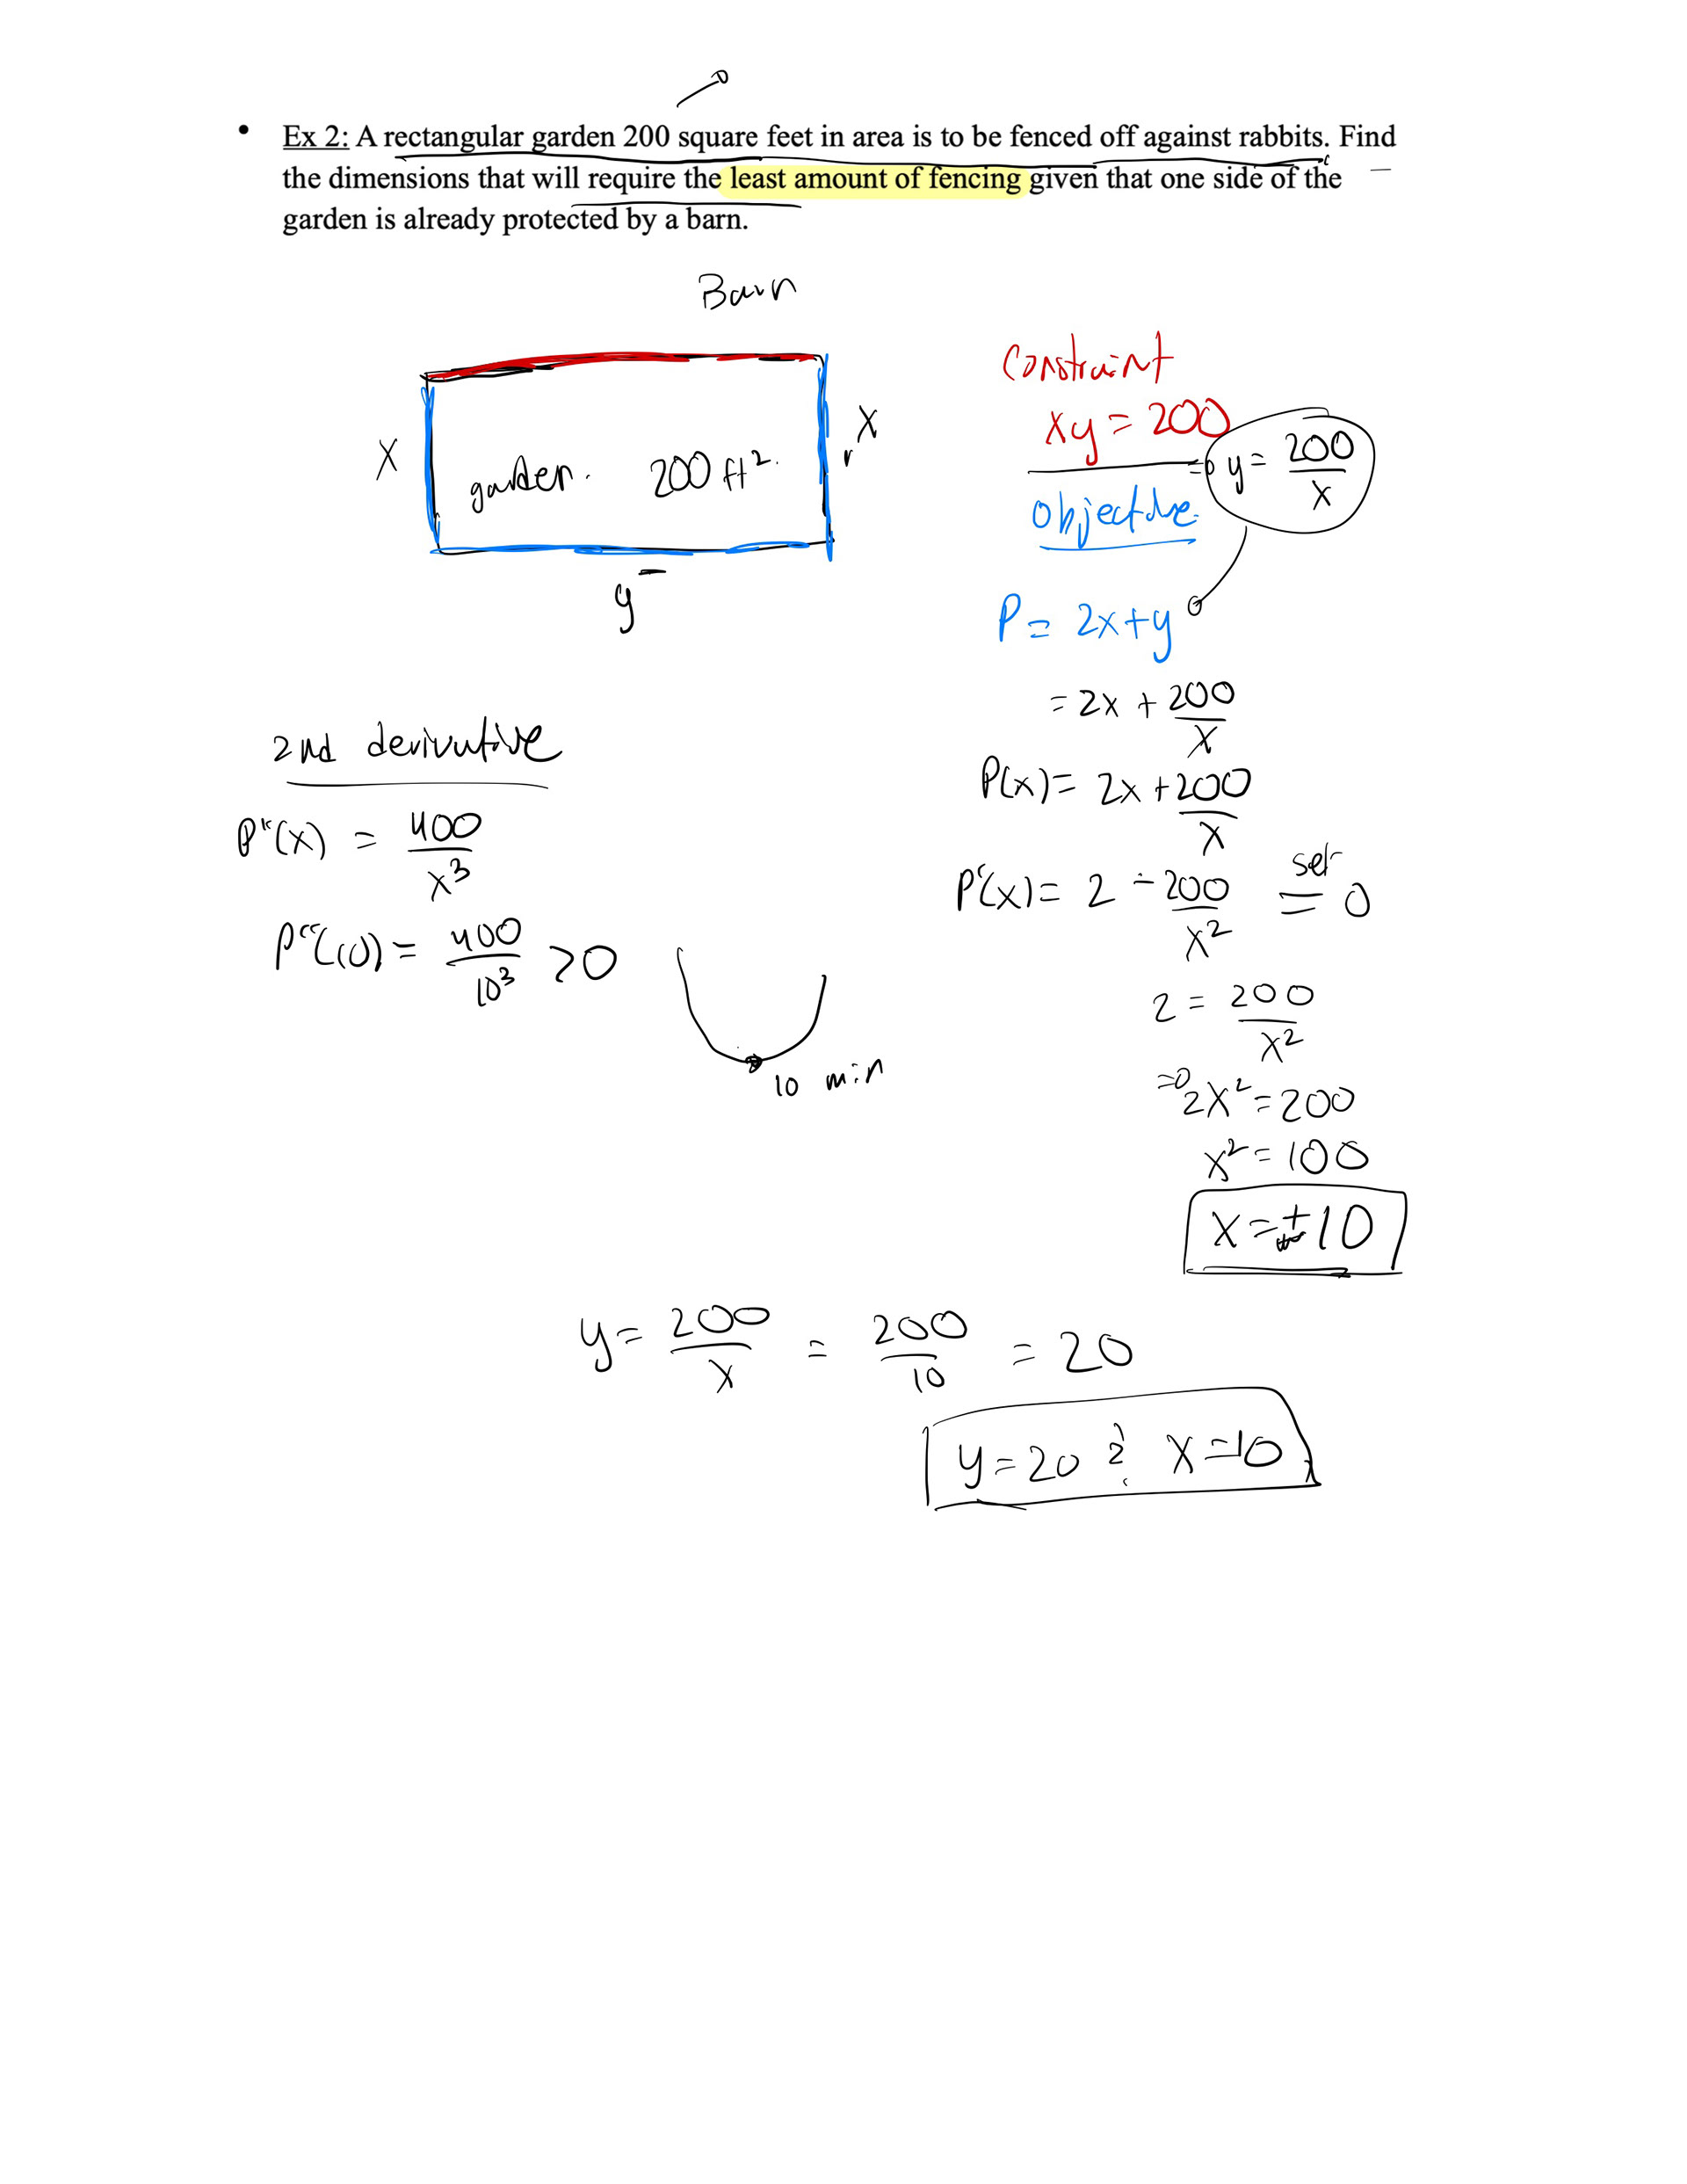 • Ex 2: A rectangular garden 200 square feet in area is to be fenced off against rabbits. Find
the dimensions that will require the least amount of fencing given that one side of the
garden is already protected by a barn.
Barn
X
garden. 200 ft².
X
y
Constraint
xy = 200
⇒ y = 200/x
Objective
P = 2x+y
= 2x + 200/x
P(x) = 2x + 200/x
P'(x) = 2 - 200/x² set = 0
2 = 200/x²
⇒ 2x² = 200
x² = 100
x = ±10
2nd derivative
P''(x) = 400/x³
P''(10) = 400/10³ > 0
10 min
y = 200/x = 200/10 = 20
y = 20 & x = 10